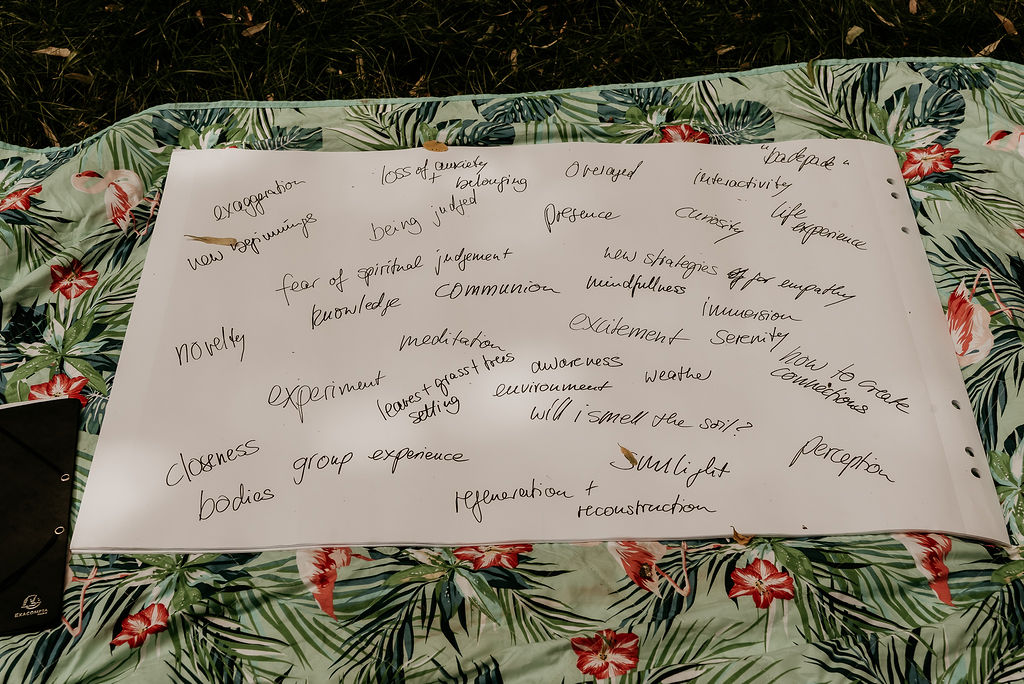 exaggeration
loss of anxiety
+ belonging
Overayed
"badepade"
interactivity
new beginnings
being judged
presence
curosity
life
experience
fear of spiritual judgement
new strategies for empathy
knowledge
communion
mindfullness
immersion
novelty
meditation
excitement
serenity
how to create
connections
experiment
leaves + grass + trees
setting
awareness
environment
weather
will i smell the soil?
closeness
group experience
sunlight
perception
bodies
regeneration +
reconstruction
EXACOMPTA